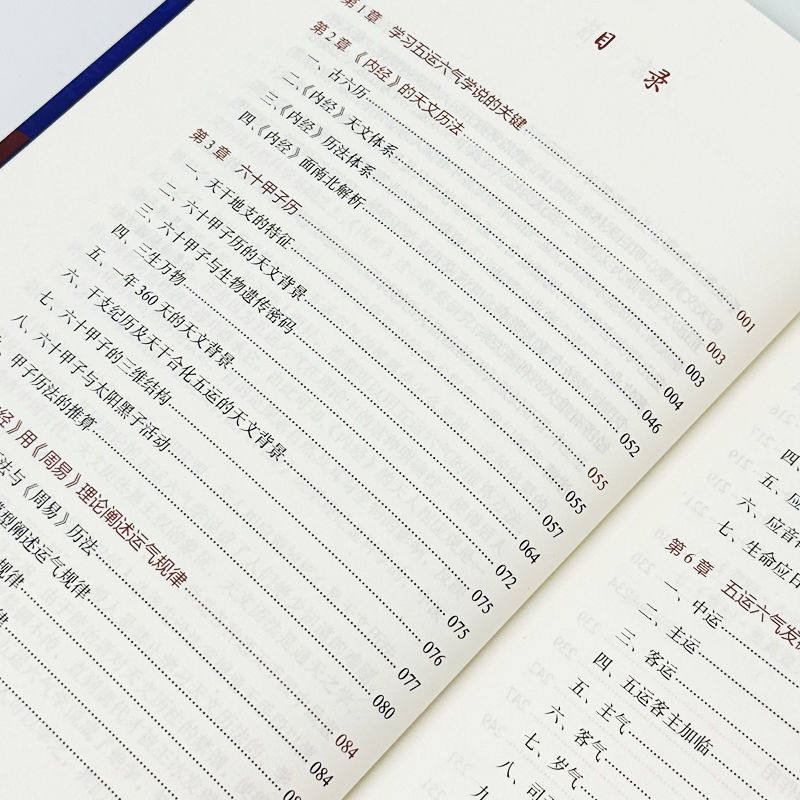 目 录
第1章 学习五运六气学说的关键 001
第2章 《内经》的天文历法 003
一、古六历 003
二、《内经》天文体系 004
三、《内经》历法体系 046
四、《内经》面南北解析 052
第3章 六十甲子历 055
一、天干地支的特征 055
二、六十甲子历的天文背景 057
三、六十甲子与生物遗传密码 064
四、三生万物 072
五、一年360天的天文背景 075
六、干支纪历及天干合化五运的天文背景 075
七、六十甲子的三维结构 076
八、六十甲子与太阳黑子活动 077
、甲子历法的推算 080
经》用《周易》理论阐述运气规律 084
法与《周易》历法 084
型阐述运气规律
规律
律
四、
五、应
六、应音
七、生命应日
第6章 五运六气发
一、中运
二、主运
三、客运
四、五运客主加临
五、主气
六、客气
七、岁气
八、司
九